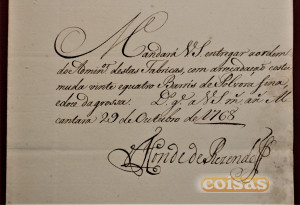 Mandará V.S. entregar a ordem
dos Admin.es destas Fabricas, com arrecadação costu
mada vinte e quatro Barris de Polvora fina,
e dous da grossa. D.s g.e a V.S. m.s an.s Al
cantara 29 de Outubro de 1768
Conde de Rezende
coisas